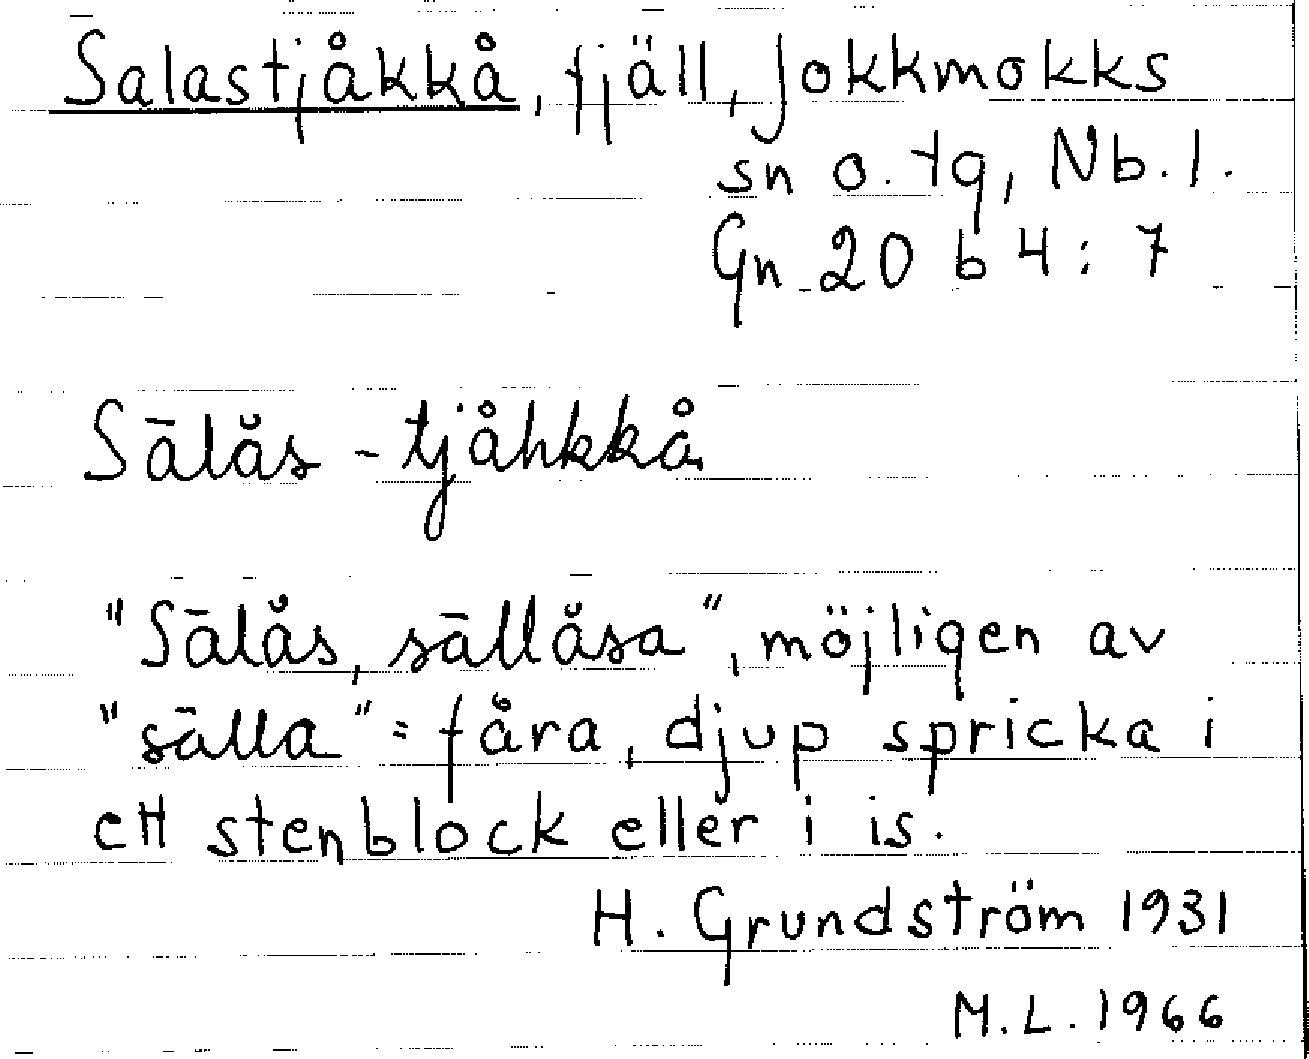 Salastjåkkå, fjäll, Jokkmokks
sn o. tg, Nb. l.
Gn 20 b 4 : 7
Sālăs - tjåhkkå
"Sālăs, sāllăsa", möjligen av
"sālla" = fåra, djup spricka i
ett stenblock eller i is.
H. Grundström 1931
M.L. 1966